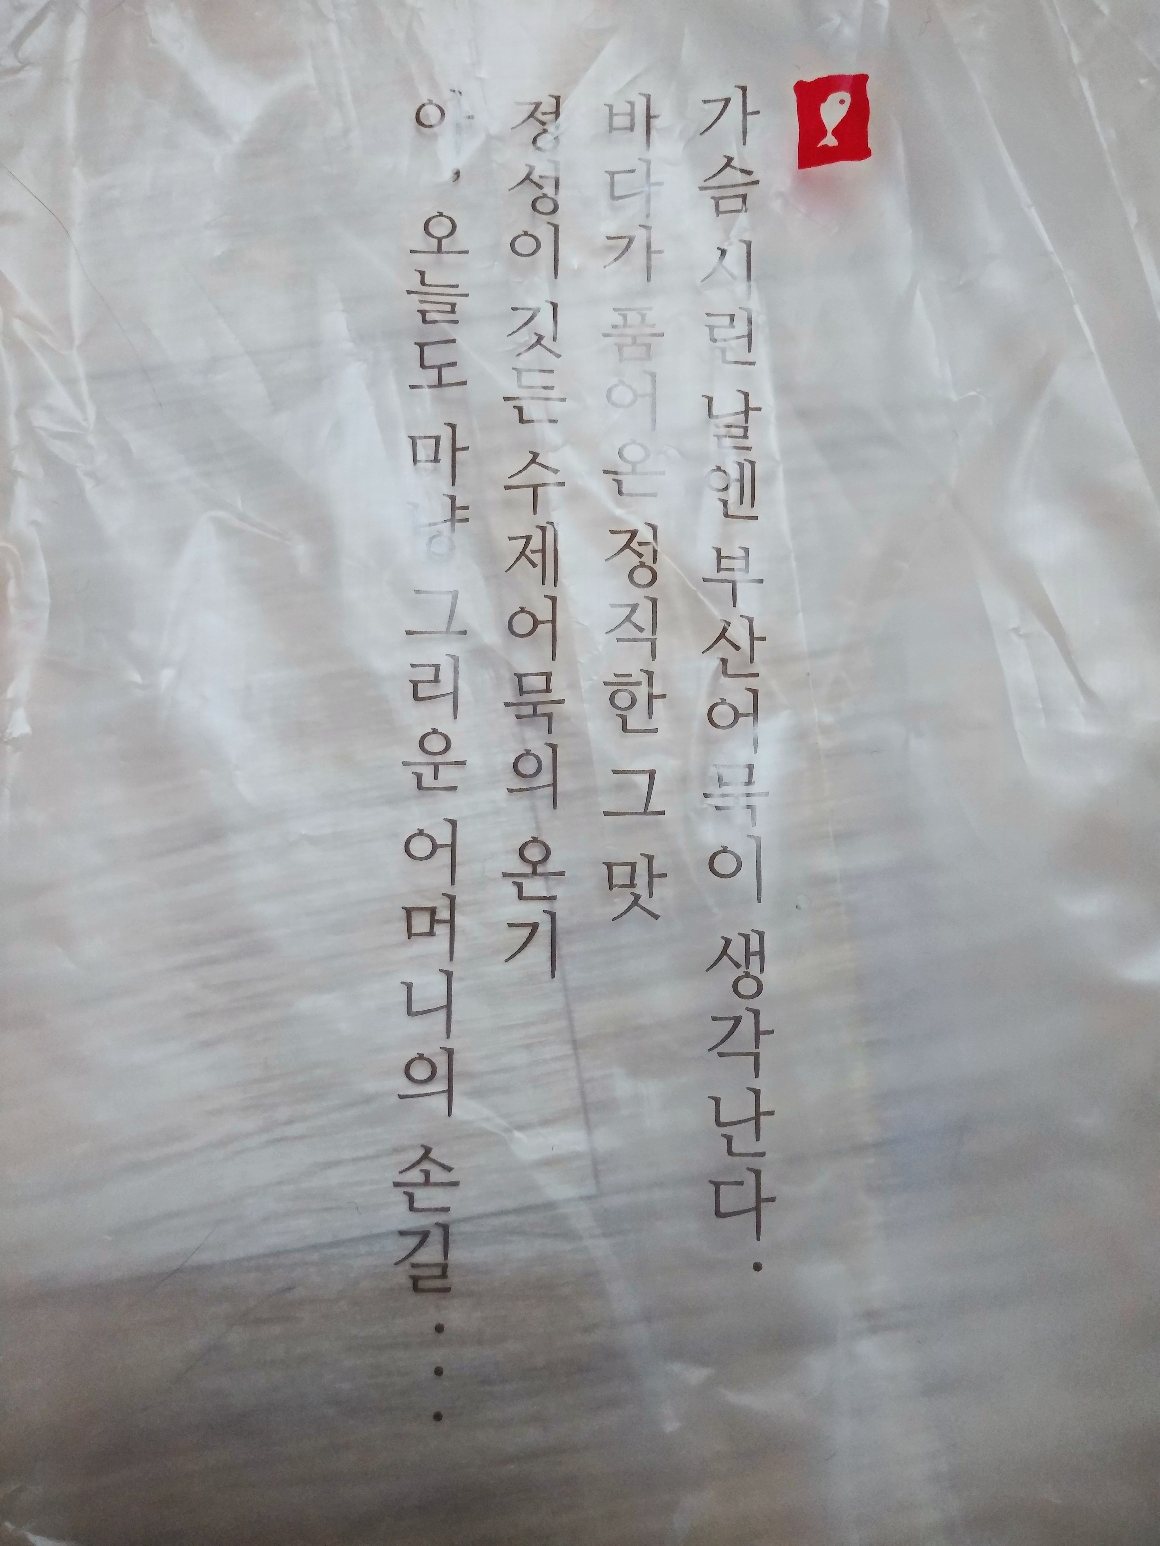 가슴 시린 날엔 부산어묵이 생각난다.
바다가 품어온 정직한 그 맛
정성이 깃든 수제어묵의 온기
아, 오늘도 마냥 그리운 어머니의 손길...